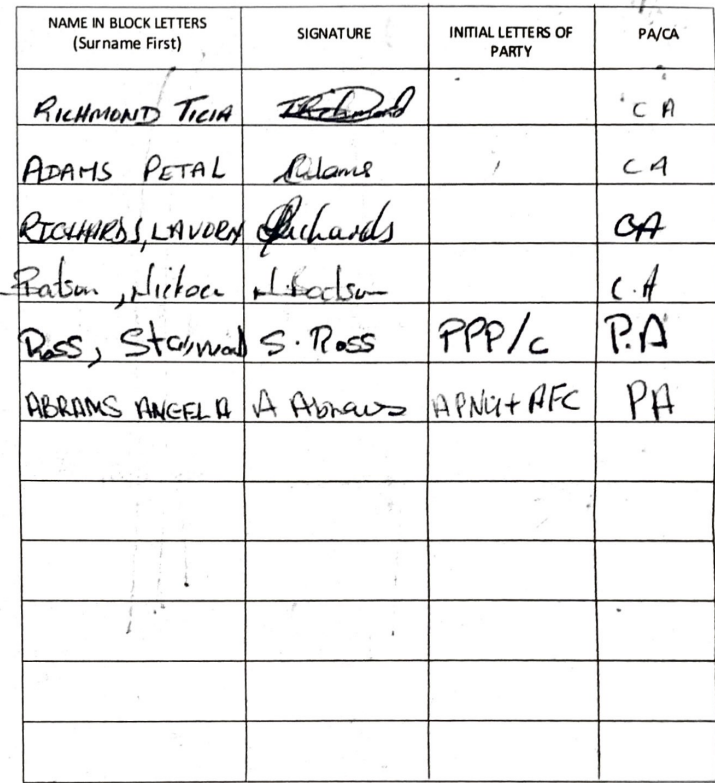 NAME IN BLOCK LETTERS (Surname First) SIGNATURE INITIAL LETTERS OF PARTY PA/CA
RICHMOND TICIA TRichmond CA
ADAMS PETAL PAdams CA
RICHARDS, LAVORN Richards CA
C.A
Ross, S. Ross PPP/C P.A
ABRAMS ANGELA A Abrams APNU+AFC PA